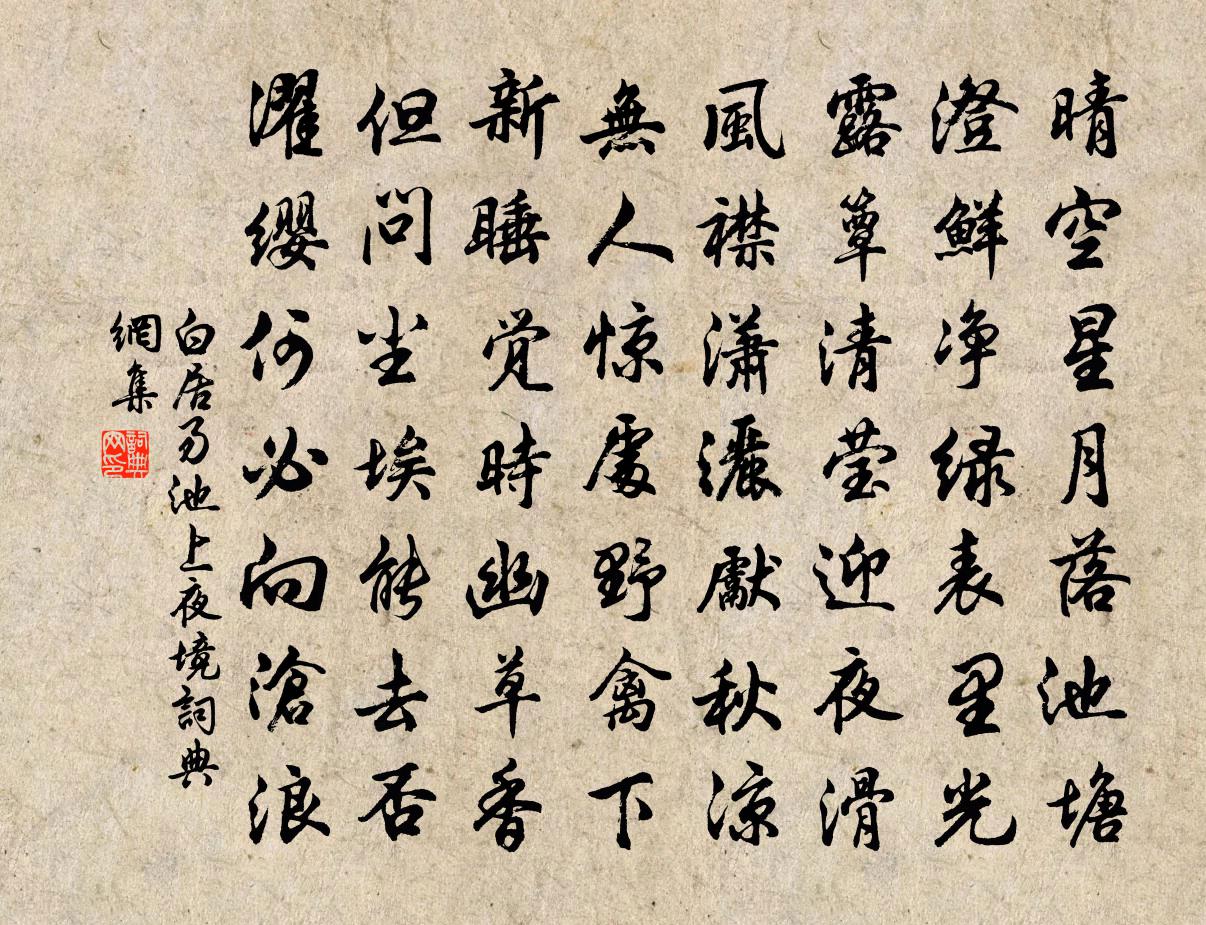 晴空星月落池塘
澄鮮淨绿表里光
露簟清莹迎夜滑
風襟瀟灑獻秋涼
無人惊處野禽下
新睡觉時幽草香
但问尘埃能去否
濯缨何必向滄浪
白居易池上夜境詞典
網集
詞典网印